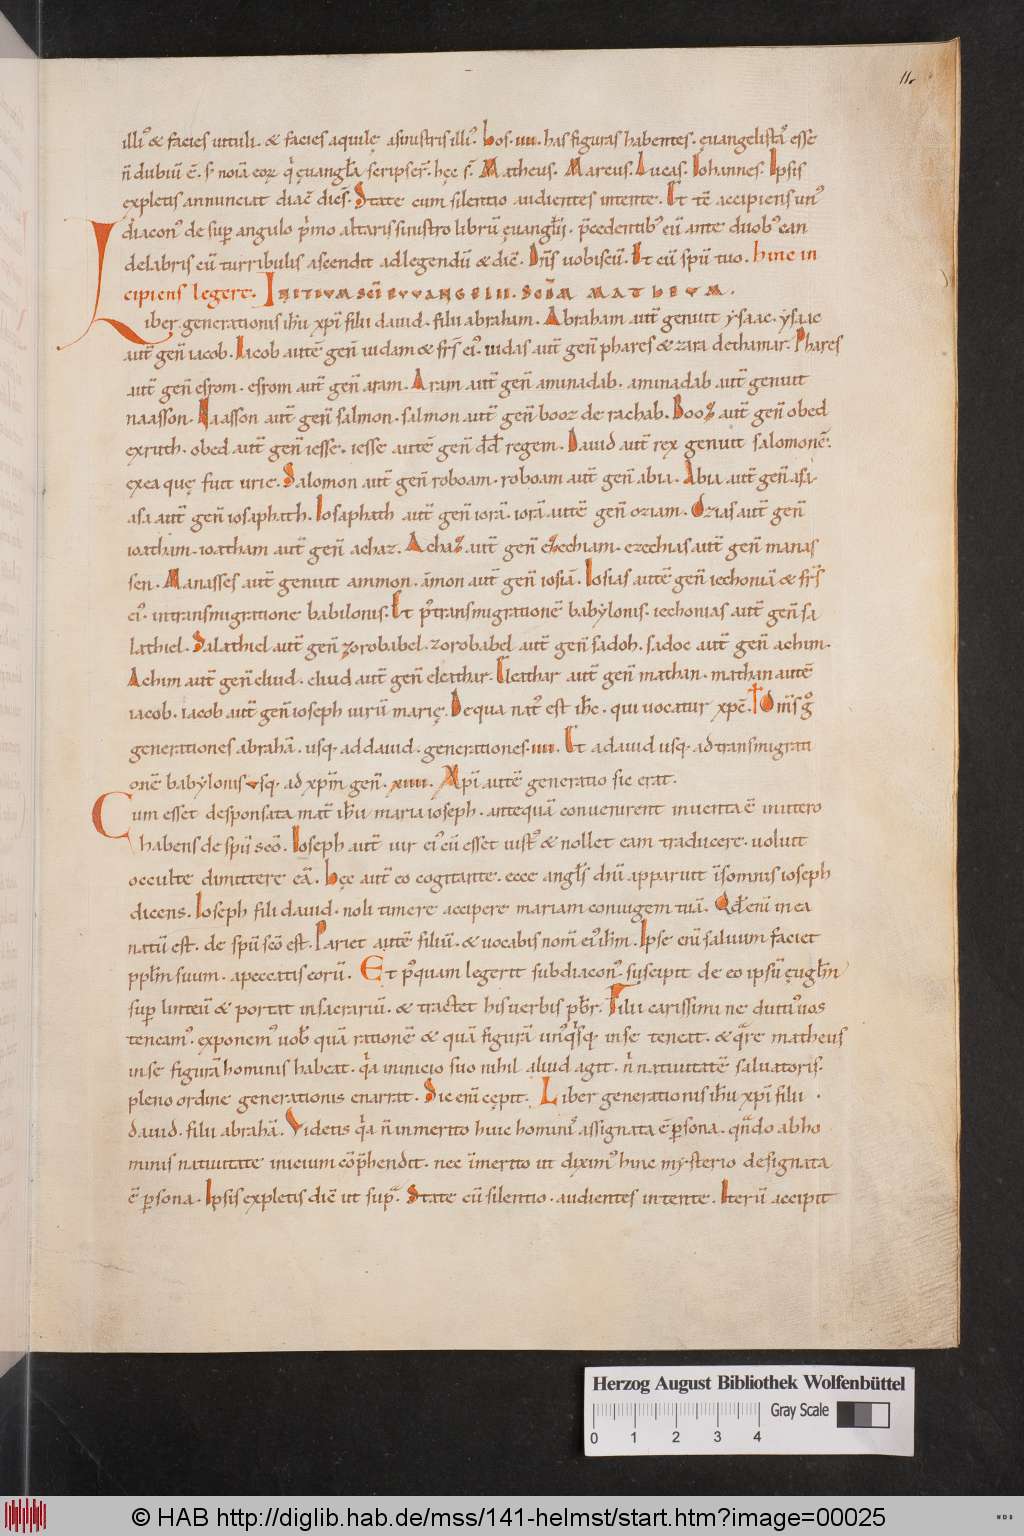 11.
illi᾽ & facies uituli. & facies aquilę asinistris illi᾽. hos .iiii. has figuras habentes. ęuangelista᷒ esse
n̄ dubiū ē. s; noīa eoꝝ q̇ ęuangl̄a scripser̄. hęc s̄. Matheus. Marcus. Lucas. Iohannes. Ipsis
expletis annunciat diac̄ dicēs. State cum silentio audientes intente. Et tc̄ accipiens un᾽
diacon᾽ de sup̱ angulo p̄mo altaris sinistro librū ęuangl̄ii. p̄cedentib᾽ eū ante duob᾽ can
delabris cū turribulis ascendit adlegendū & dic̄. Dn̄s uobiscū. Et cū spū tuo. hinc in
cipiens legere. INITIUM SC̄I EUUANGELII. SCD̄M MATHEUM.
Liber generationis ih̄u xp̄i filii dauid. filii abraham. Abraham aut̄ genuit ysaac. ysaac
aut̄ gen̄ iacob. Iacob autē gen̄ iudam & fr̄s ei᾽. iudas aut̄ gen̄ phares & zara dethamar. Phares
aut̄ gen̄ esrom. esrom aut̄ gen̄ aram. Aram aut̄ gen̄ aminadab. aminadab aut̄ genuit
naasson. Naasson aut̄ gen̄ salmon. salmon aut̄ gen̄ booz de rachab. Booz aut̄ gen̄ obed
exruth. obed aut̄ gen̄ iesse. iesse autē gen̄ dd̄ regem. Dauid aut̄ rex genuit salomonē.
exea quę fuit urie. Salomon aut̄ gen̄ roboam. roboam aut̄ gen̄ abia. Abia aut̄ gen̄ asa.
asa aut̄ gen̄ iosaphath. Iosaphath aut̄ gen̄ iorā. iorā autē gen̄ oziam. Ozias aut̄ gen̄
ioatham. ioatham aut̄ gen̄ achaz. Achaz aut̄ gen̄ ezechiam. ezechias aut̄ gen̄ manas
sen. Manasses aut̄ genuit ammon. āmon aut̄ gen̄ iosiā. Iosias autē gen̄ iechoniā & fr̄s
ei᾽. intransmigratione babilonis. Et p᾽transmigrationē babylonis. iechonias aut̄ gen̄ sa
lathiel. Salathiel aut̄ gen̄ zorobabel. zorobabel aut̄ gen̄ sadoh. sadoc aut̄ gen̄ achim.
Achim aut̄ gen̄ eliud. eliud aut̄ gen̄ eleathar. Eleathar aut̄ gen̄ mathan. mathan autē
iacob. iacob aut̄ gen̄ ioseph uirū marię. Dequa nat᾽ est ih̄c. qui uocatur xpc̄. Om̄s g̊
generationes abrahā. usq. addauid. generationes. iiii. Et adauid usq. adtransmigrati
onē babylonis usq. ad xp̄m gen̄. xiiii. Xpi autē generatio sic erat.
Cum esset desponsata mat̄ ih̄u maria ioseph. antequā conuenirent inuenta ē inutero
habens de spū scō. Ioseph aut̄ uir ei᾽ cū esset iust᾽ & nollet eam traducere. uoluit
occulte dimittere eā. hęc aut̄ eo cogitante. ecce angl̄s dnī apparuit īsomnis ioseph
dicens. Ioseph fili dauid. noli timere accipere mariam coniugem tuā. Qd̄ enī in ea
natū est. de spū scō est. Pariet autē filiū. & uocabis nom̄ ei᾽ ih̄m. Ipse enī saluum faciet
ppl̄m suum. apeccatis eorū. Et p᾽quam legerit subdiacon᾽ suscipit de eo ipsū ęugl̄m
sup̱ linteū & portat insacrariū. & tractet his uerbis pb̄r. Filii carissimi ne diuti᾽ uos
teneam᾽. exponem᾽ uob̄ quā rationē & quā figurā un᾽q̇sq. inse teneat. & q̄re matheus
inse figurā hominis habeat. q̇a inicio suo nihil aliud agit. n̄ natiuitatē saluatoris.
pleno ordine generationis enarrat. Sic enī cępit. Liber generationis ih̄u xp̄i filii
dauid. filii abrahā. Videtis q̇a n̄ inmerito huic homini᾽ assignata ē p̱sona. qn̄do abho
minis natiuitate inicium cōp̄hendit. nec īmerito ut dixim᾽ hinc mysterio designata
ē p̱sona. Ipsis expletis dic̄ ut sup̄. State cū silentio. audientes intente. Iterū accipit
Herzog August Bibliothek Wolfenbüttel
Gray Scale
0 1 2 3 4
© HAB http://diglib.hab.de/mss/141-helmst/start.htm?image=00025